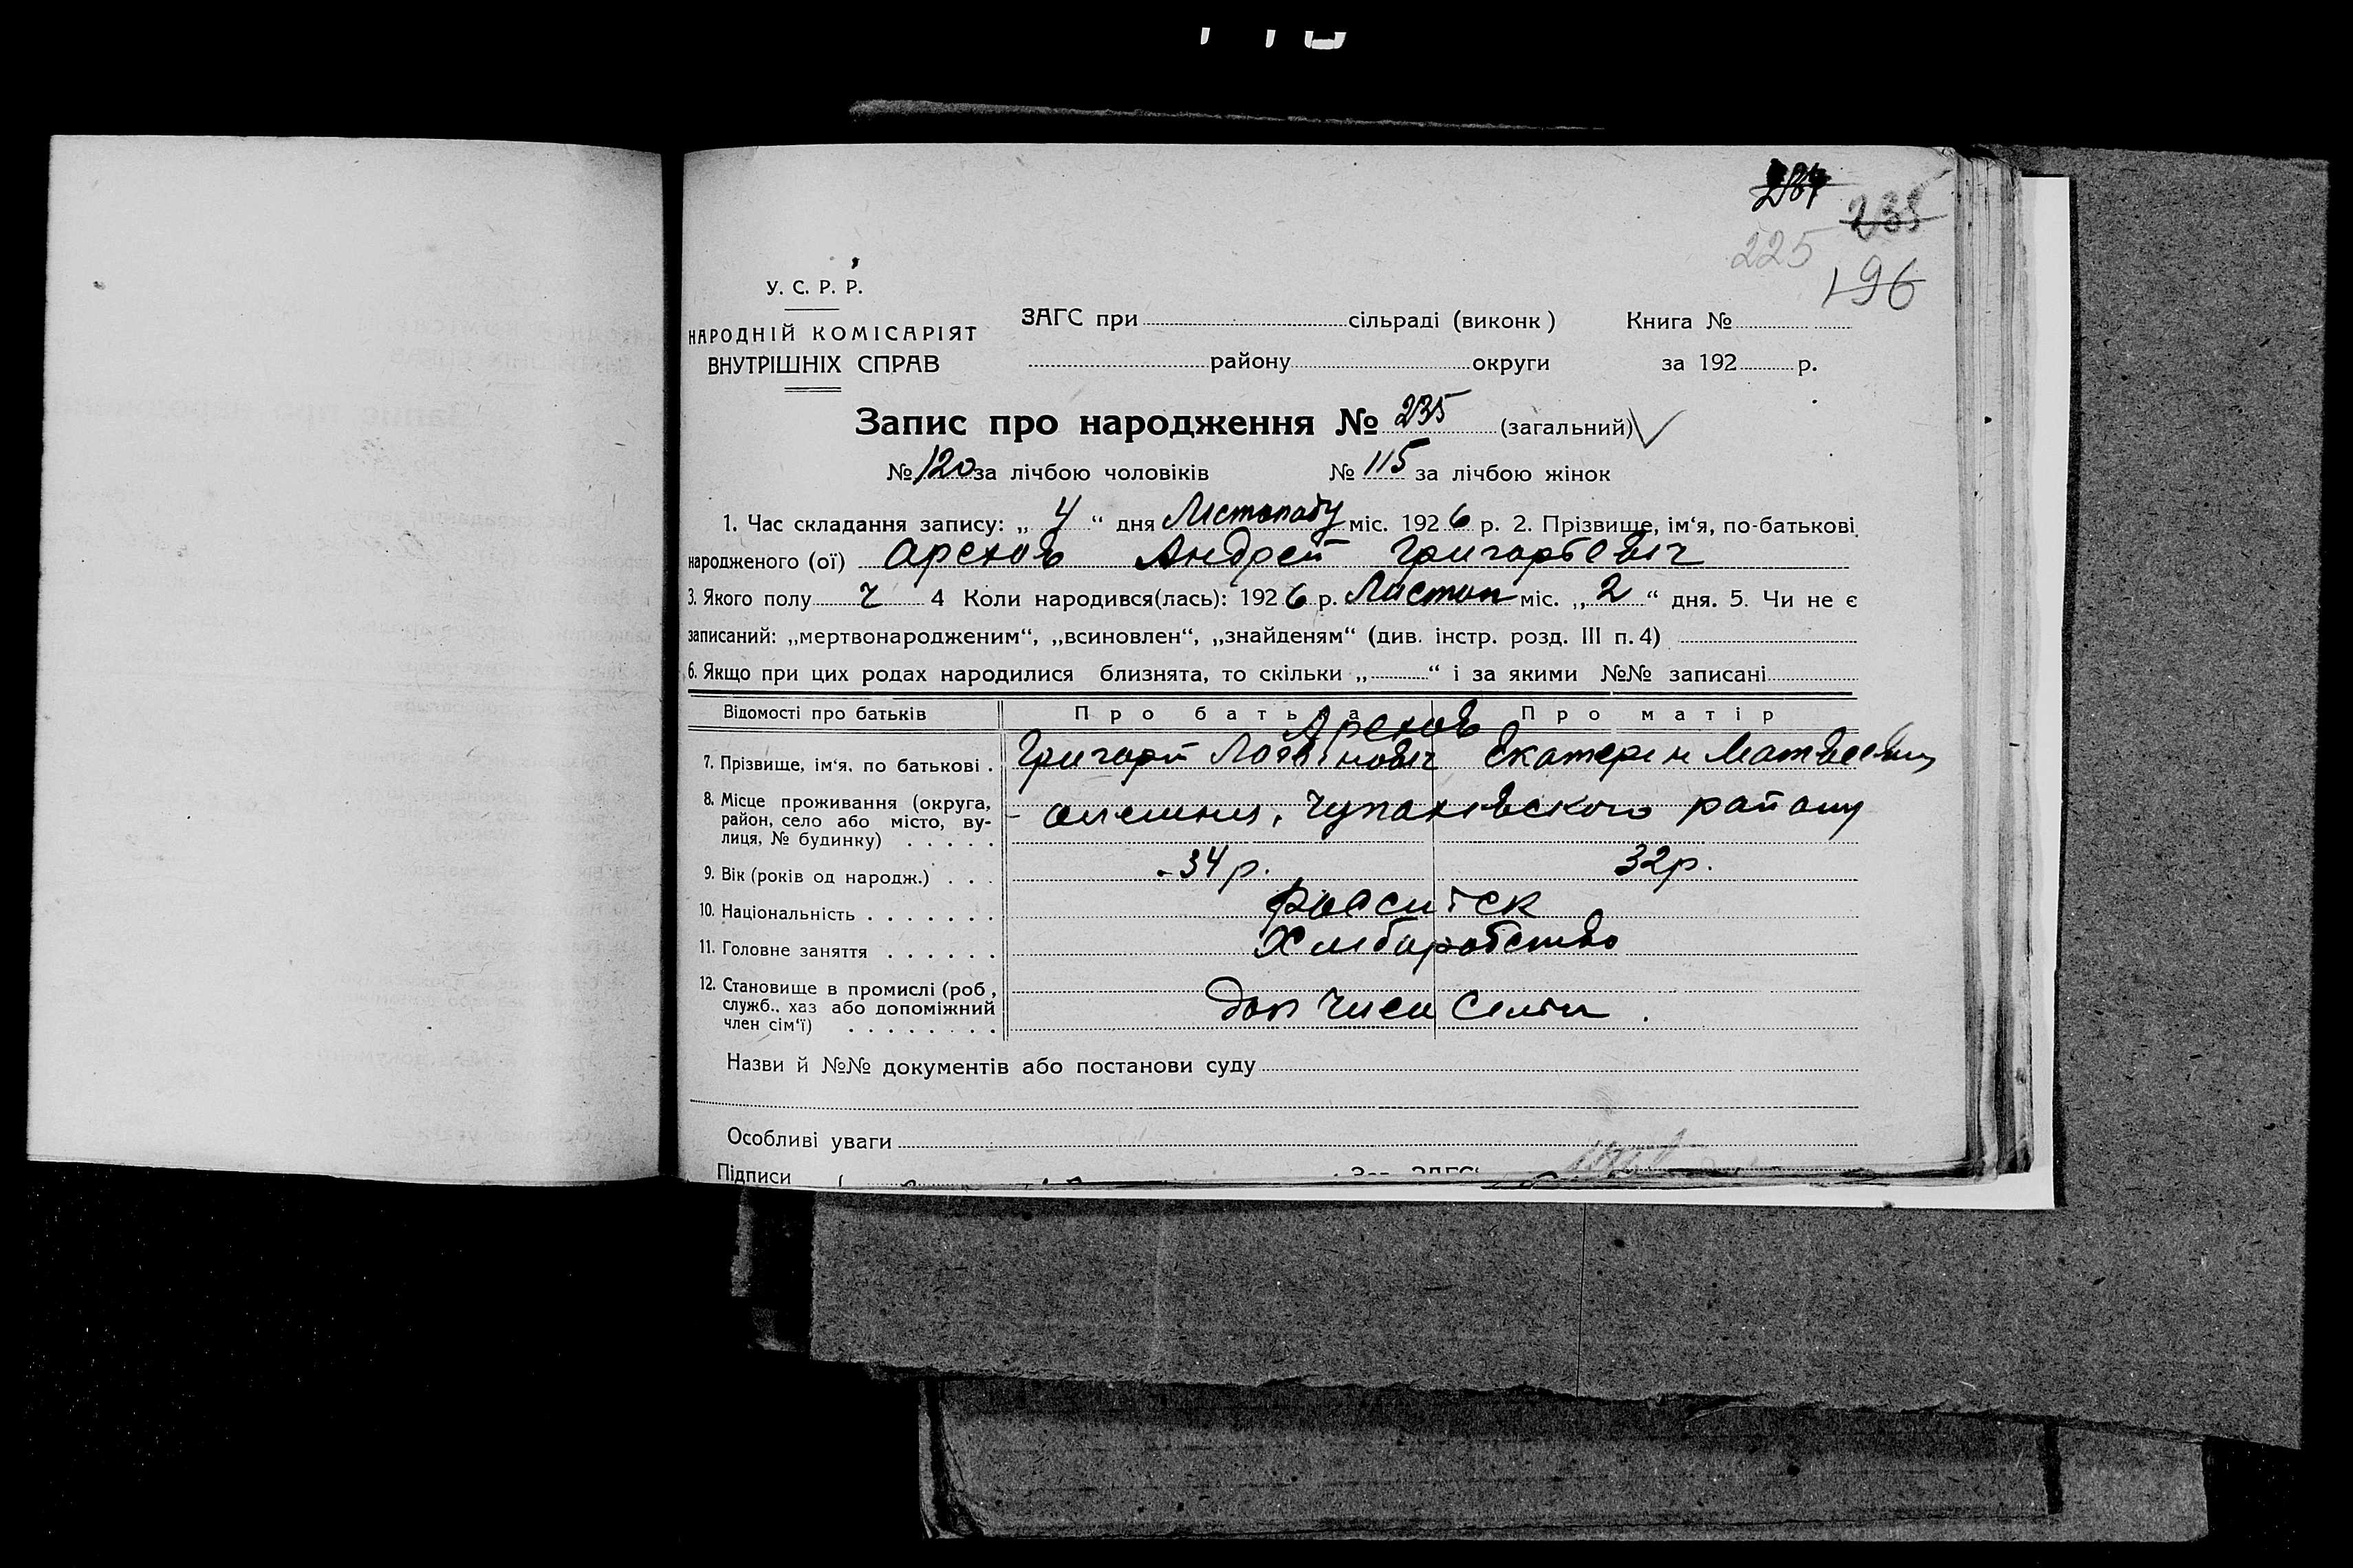 235
225
196
У. С. Р. Р.
НАРОДНІЙ КОМІСАРІЯТ
ВНУТРІШНІХ СПРАВ
ЗАГС при сільраді (виконк)
району округи
Книга №
за 192 р.
Запис про народження № 235 (загальний)
№ 120 за лічбою чоловіків № 115 за лічбою жінок
1. Час складання запису: „ 4 “ дня Лістопаду міс. 1926 р. 2. Прізвище, ім‘я, по-батькові
народженого (ої) Арехов Андрей Григорьевіч
3. Якого полу ч 4 Коли народився(лась): 1926 р. Листоп міс. „ 2 “ дня. 5. Чи не є
записаний: „мертвонародженим“, „всиновлен“, „знайденям“ (див. інстр. розд. III п. 4)
6. Якщо при цих родах народилися близнята, то скільки „ “ і за якими №№ записані
Відомості про батьків Про батька Про матір
Арехов
7. Прізвище, ім‘я, по батькові . Григорй Екатерин Матвеевна
8. Місце проживання (округа,
район, село або місто, ву-
лиця, № будинку) . . . . .
Олешня, Чупахівского району
9. Вік (років од народж.) . . . 34 р. 32 р.
10. Національність . . . . . . . Россійск
11. Головне заняття . . . . . . Хлиборобство
12. Становище в промислі (роб,
служб., хаз або допоміжний
член сім‘ї) . . . . . . . .
доп
Назви й №№ документів або постанови суду
Особливі уваги
Підписи Зав. ЗАГС